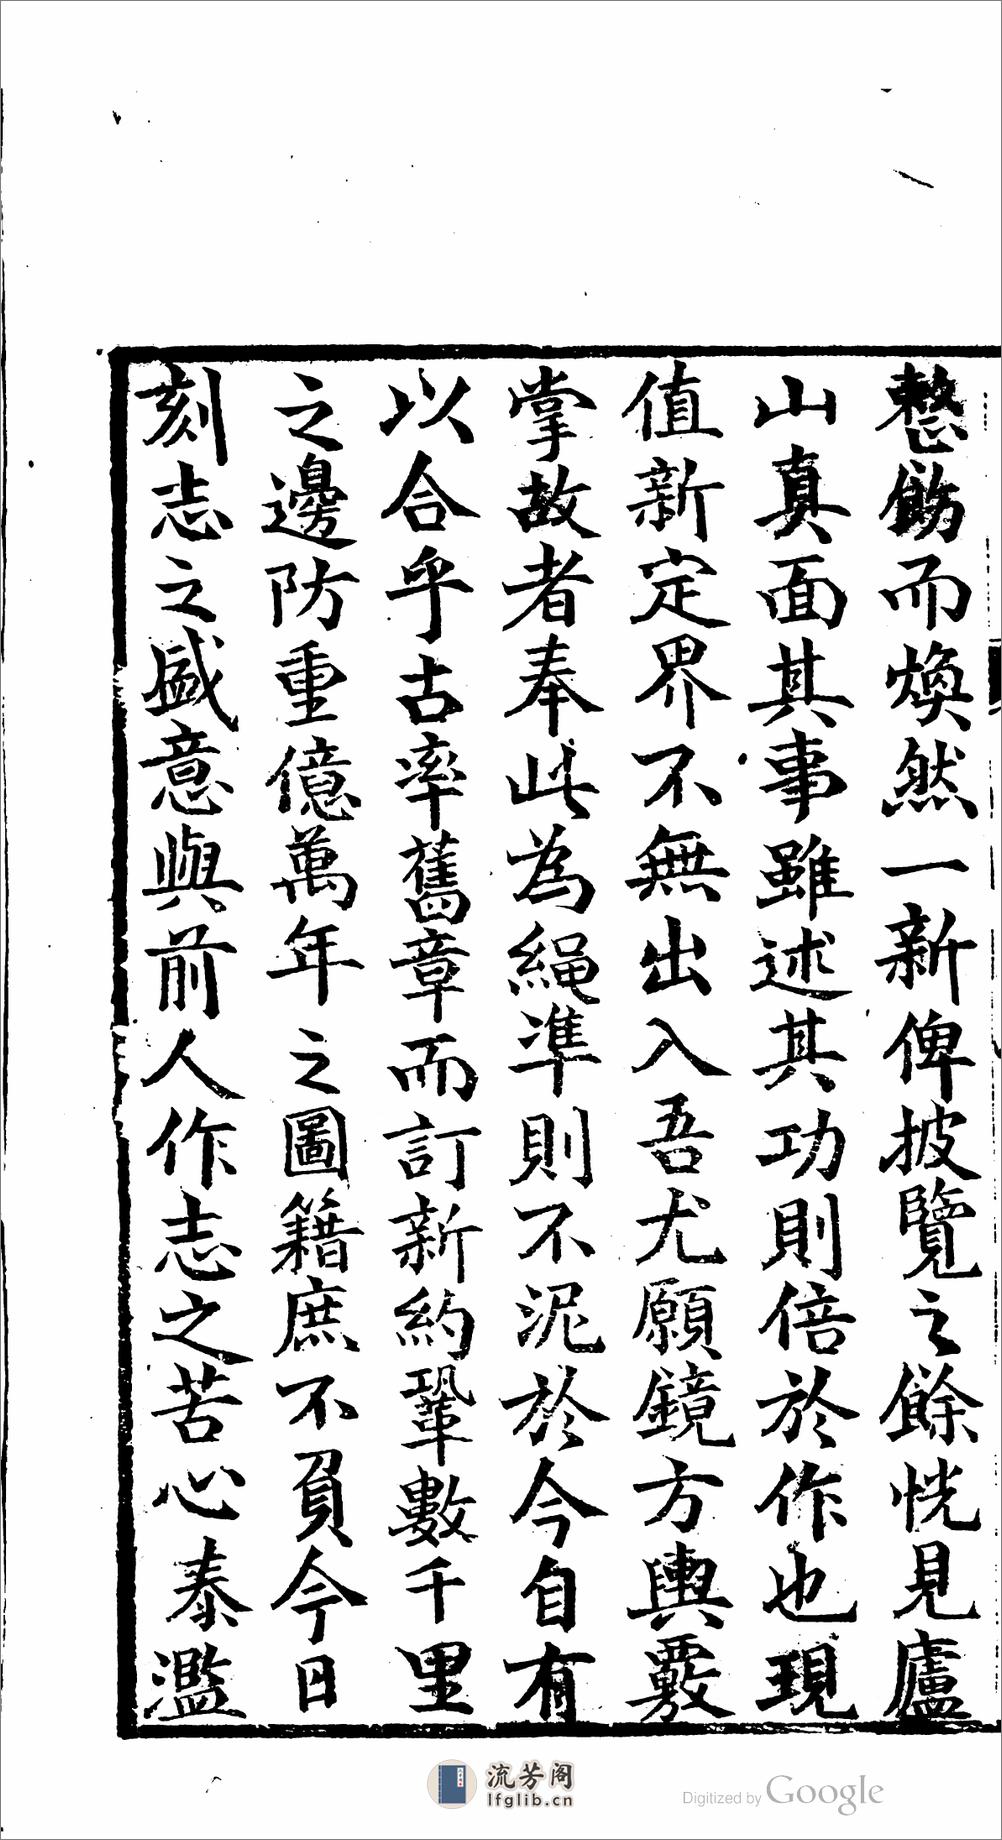 整飭而煥然一新俾披覽之餘恍見廬
山真面其事雖述其功則倍於作也現
值新定界不無出入吾尤願鏡方輿覈
掌故者奉此為繩準則不泥於今自有
以合乎古率舊章而訂新約鞏數千里
之邊防重億萬年之圖籍庶不負今日
刻志之盛意與前人作志之苦心泰濫
流芳阁
lfglib.cn
Digitized by Google